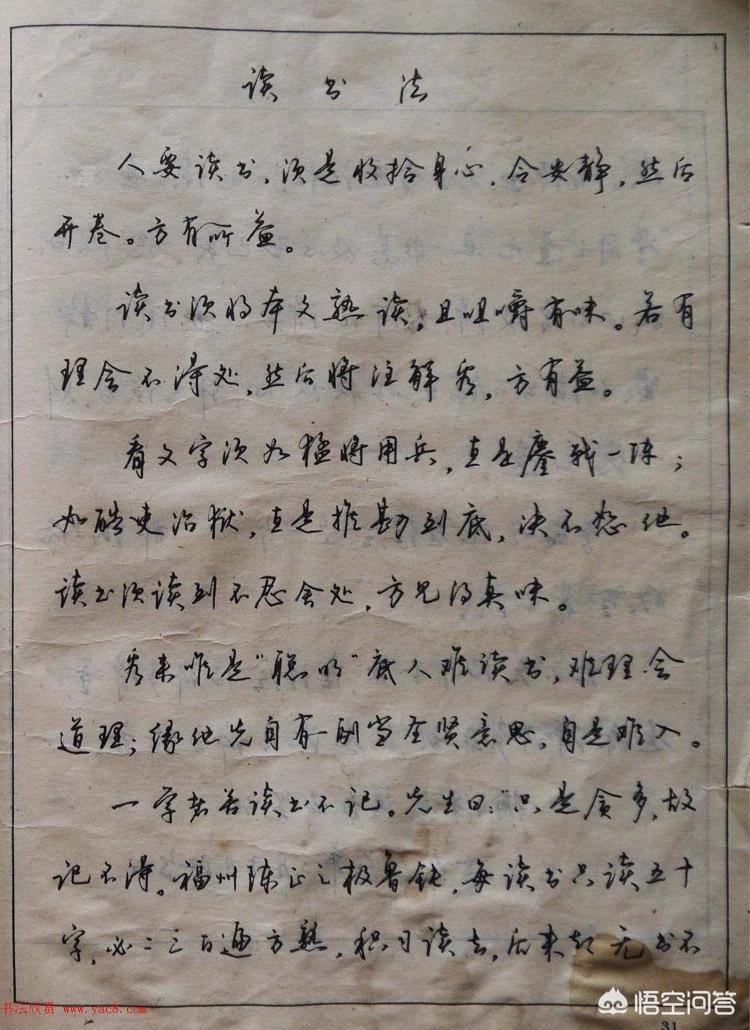 读书法
人要读书，须是收拾身心，令安静，然后
开卷。方有所益。
读书须将本文熟读，且咀嚼有味。若有
理会不得处，然后将注解看，方有益。
看文字须如猛将用兵，直是鏖战一阵；
如酷吏治狱，直是推勘到底，决不恕他。
读书须读到不忍舍处，方见得真味。
看来唯是“聪明”底人难读书，难理会
道理；缘他先自有一副当圣贤意思，自是难入。
一学者苦读书不记。先生曰：“只是贪多，故
记不得。福州陈正之极鲁钝，每读书只读五十
字，必二三百遍方熟，积日读去，后来却无书不
31
书法欣赏 www.yac8.com
悟空问答